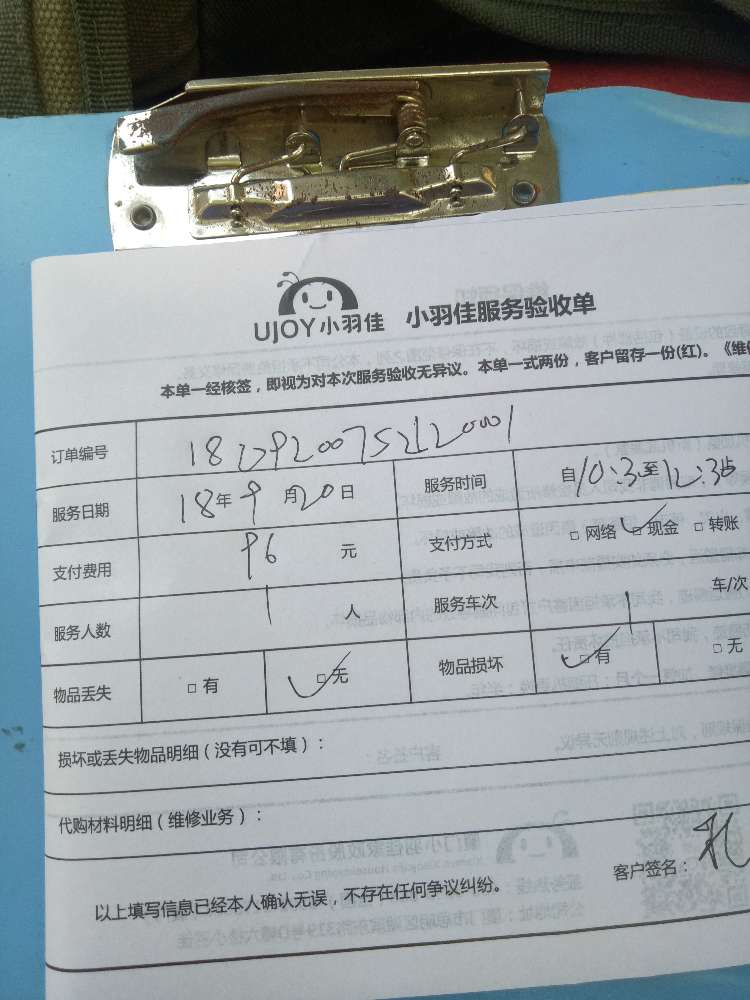 UJOY小羽佳 小羽佳服务验收单
本单一经核签，即视为对本次服务验收无异议。本单一式两份，客户留存一份(红)。《维修
订单编号
服务日期 18年9月20日 服务时间 自10:3至12:3
支付费用 96 元 支付方式 □网络 □现金 □转账
服务人数 1 人 服务车次 1 车/次
物品丢失 □有 □无 物品损坏 □有 □无
损坏或丢失物品明细（没有可不填）：
代购材料明细（维修业务）：
以上填写信息已经本人确认无误，不存在任何争议纠纷。 客户签名：